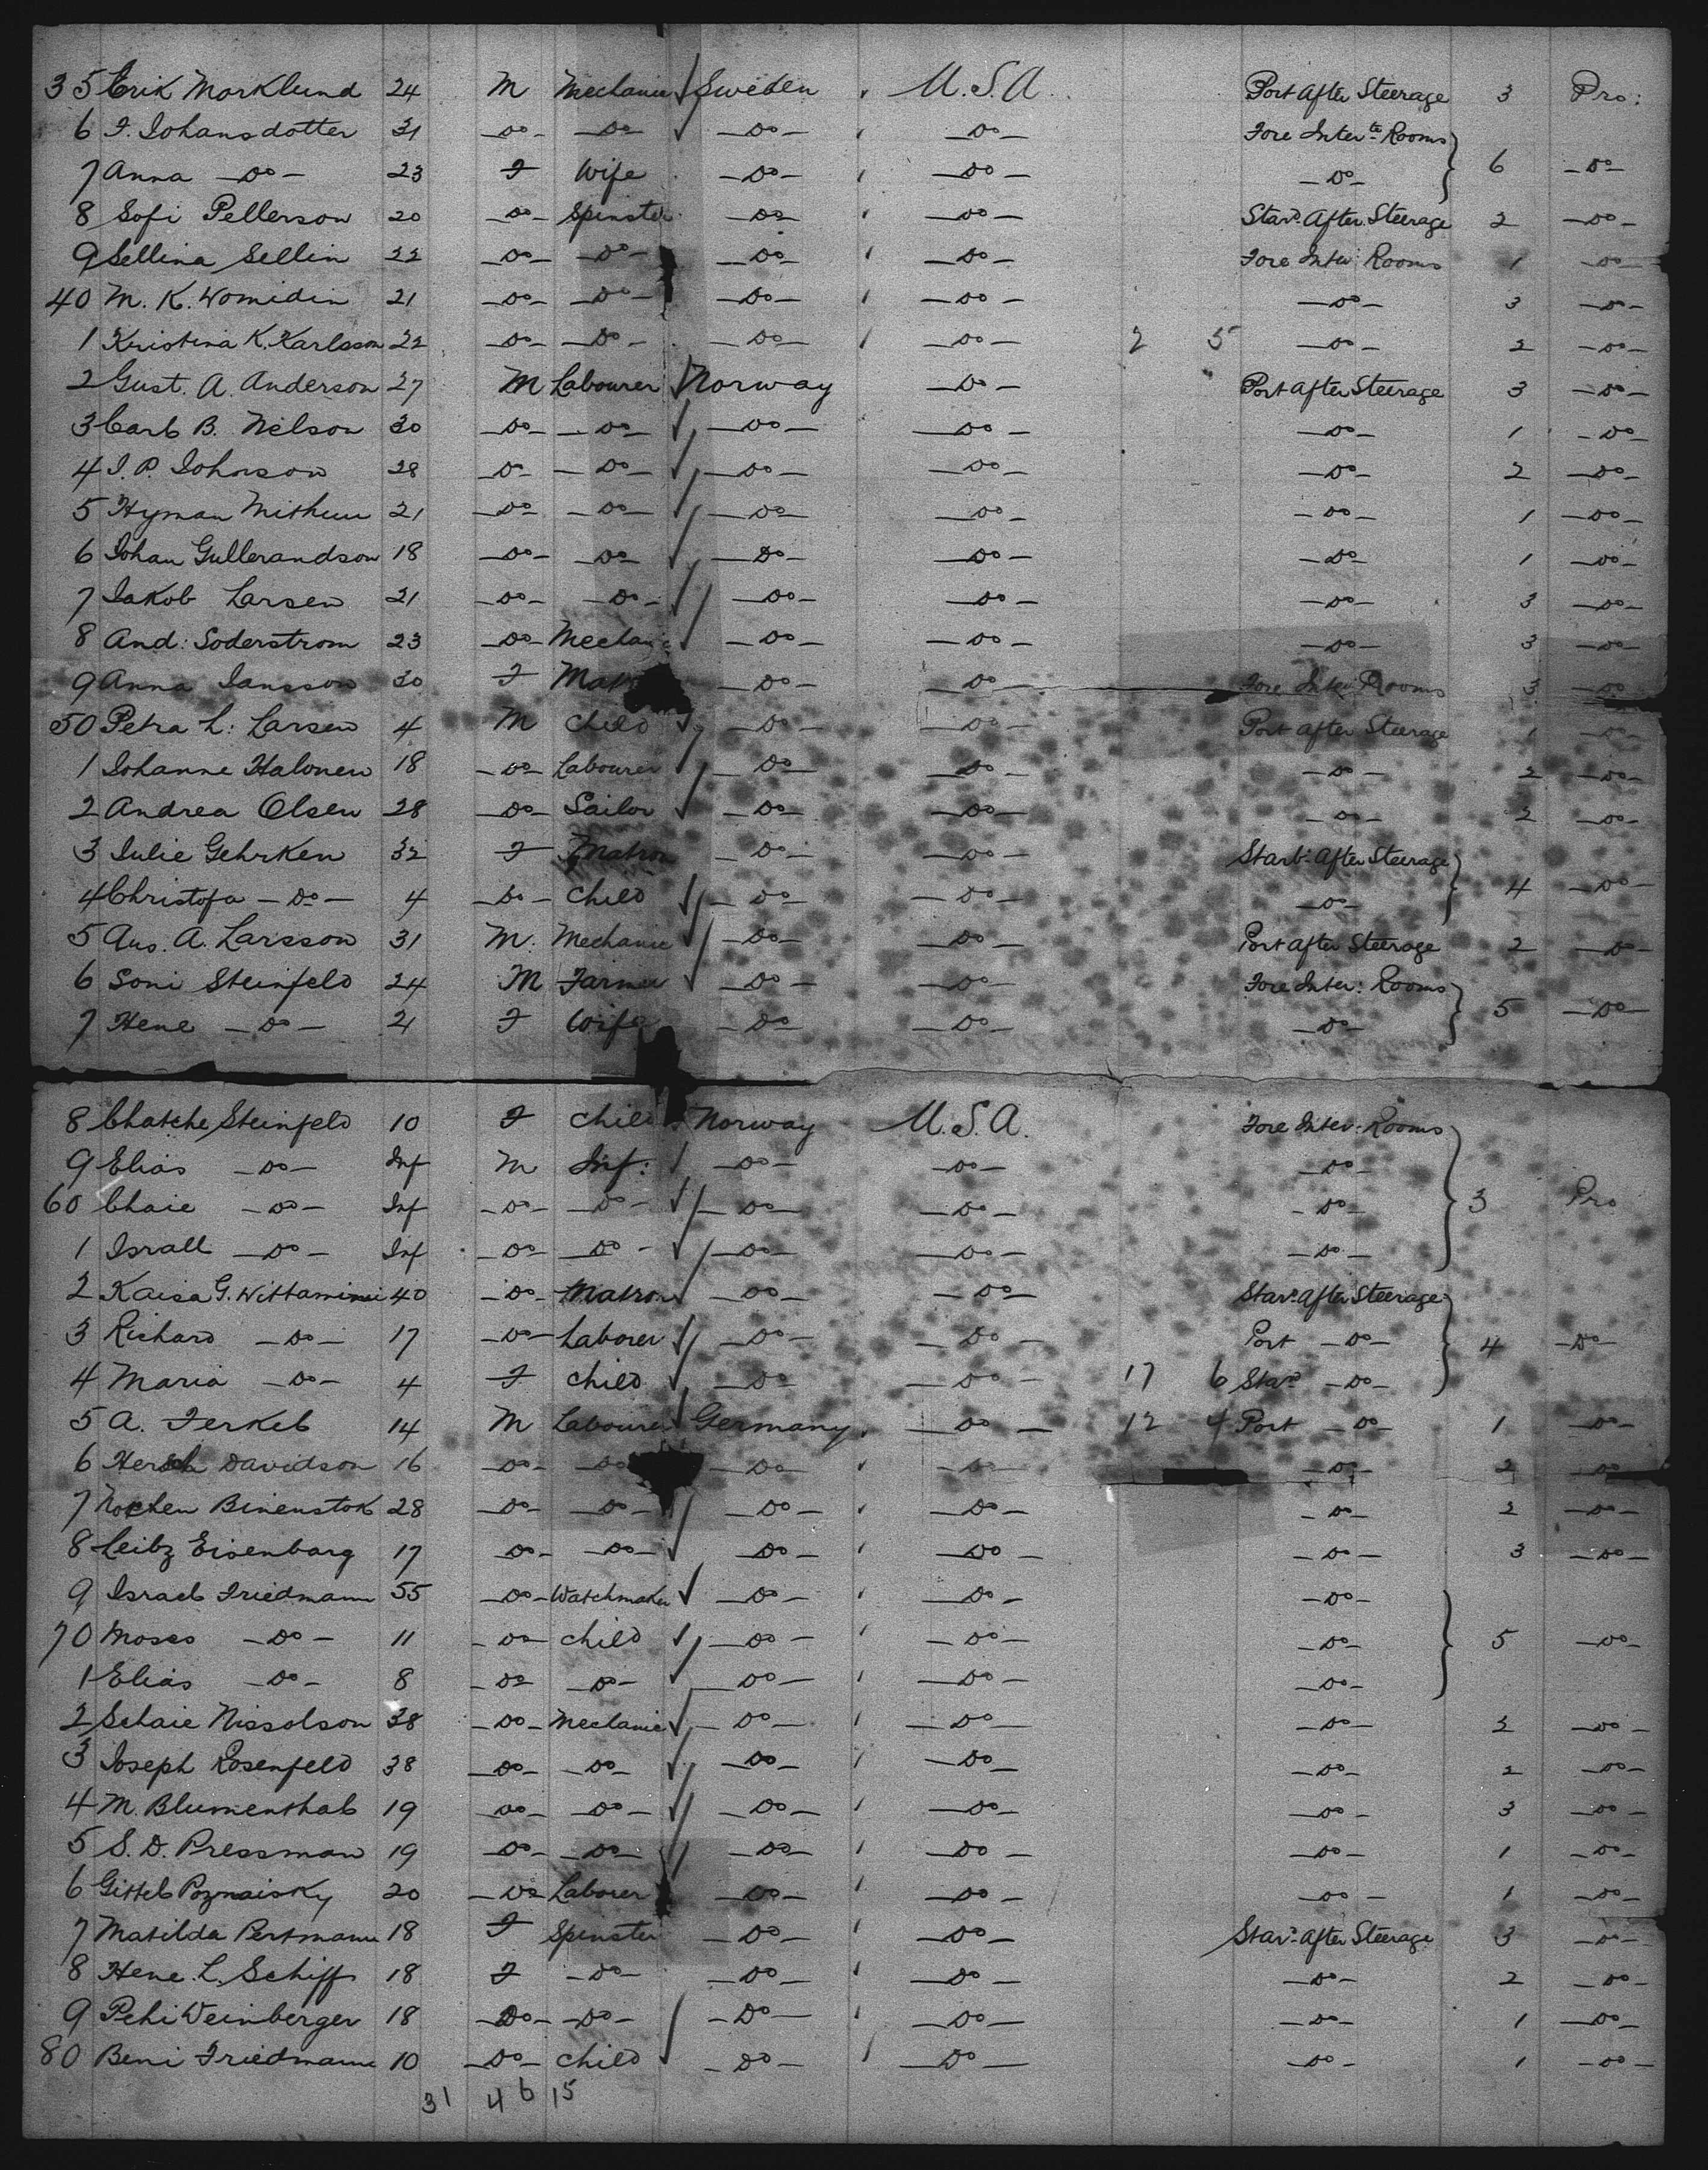 35 Erik Marklund 24 M Mechanic Sweden U.S.A. Port After Steerage 3 Pro:
6 I. Johansdotter 31 -Do- -Do- -Do- -Do- Fore Inter te Rooms
7 Anna -Do- 23 F Wife -Do- -Do- -Do- 6 -Do-
8 Sofi Pellerson 20 -Do- Spinster -Do- -Do- Starb. After Steerage 2 -Do-
9 Sellina Sellin 22 -Do- -Do- -Do- -Do- Fore Inter: Rooms 1 -Do-
40 M. K. Womidin 21 -Do- -Do- -Do- -Do- -Do- 3 -Do-
1 Kristina K. Karlsson 22 -Do- -Do- -Do- -Do- 2 5 -Do- 2 -Do-
2 Gust. A. Anderson 27 M Labourer Norway -Do- Port After Steerage 3 -Do-
3 Carl B. Nelson 30 -Do- -Do- -Do- -Do- -Do- 1 -Do-
4 I. P. Johnson 28 -Do- -Do- -Do- -Do- -Do- 2 -Do-
5 Hyman 21 -Do- -Do- -Do- -Do- -Do- 1 -Do-
6 Johan Gullerandson 18 -Do- -Do- -Do- -Do- -Do- 1 -Do-
7 Jakob Larsen 21 -Do- -Do- -Do- -Do- -Do- 3 -Do-
8 And: Soderstrom 23 -Do- Mechanic -Do- -Do- -Do- 3 -Do-
9 Anna Jansson 30 F Mat -Do- -Do- Fore Inter: Rooms 3 -Do-
50 Petra L: Larsen 4 M Child -Do- -Do- Port After Steerage 1 -Do-
1 Johanne Halonen 18 -Do- Labourer -Do- -Do- -Do- 2 -Do-
2 Andrea Olsen 28 -Do- Sailor -Do- -Do- -Do- 2 -Do-
3 Julie Gehrken 32 F Matron -Do- -Do- Starb. After Steerage
4 Christofa -Do- 4 -Do- Child -Do- -Do- -Do- 4 -Do-
5 Aug. A. Larsson 31 M. Mechanic -Do- -Do- Port After Steerage 2 -Do-
6 Soni Steinfeld 24 M Farmer -Do- -Do- Fore Inter: Rooms
7 Hene -Do- 21 F Wife -Do- -Do- -Do- 5 -Do-
8 Chatche Steinfeld 10 F Child Norway U.S.A. Fore Inter: Rooms
9 Elias -Do- Inf M Inf: -Do- -Do- -Do-
60 Chaie -Do- Inf -Do- -Do- -Do- -Do- -Do- 3 Pro
1 Israll -Do- Inf -Do- -Do- -Do- -Do- -Do-
2 Kaisa G. Wittamimi 40 -Do- Matron -Do- -Do- Starb. After Steerage
3 Richard -Do- 17 -Do- Laborer -Do- -Do- Port -Do- 4 -Do-
4 Maria -Do- 4 F Child -Do- -Do- 17 6 Starb -Do-
5 A. Ferkel 14 M Labourer Germany -Do- 12 4 Port -Do- 1 -Do-
6 Hersch Davidson 16 -Do- -Do- -Do- -Do- -Do- 2 -Do-
7 Nochen Binenstok 28 -Do- -Do- -Do- -Do- -Do- 2 -Do-
8 Leibz Eisenbarg 17 -Do- -Do- -Do- -Do- -Do- 3 -Do-
9 Israel Friedmann 55 -Do- Watchmaker -Do- -Do- -Do-
70 Moses -Do- 11 -Do- Child -Do- -Do- -Do- 5 -Do-
1 Elias -Do- 8 -Do- -Do- -Do- -Do- -Do-
2 Schaie Nissolson 38 -Do- Mechanic -Do- -Do- -Do- 2 -Do-
3 Joseph Rosenfeld 38 -Do- -Do- -Do- -Do- -Do- 2 -Do-
4 M. Blumenthal 19 -Do- -Do- -Do- -Do- -Do- 3 -Do-
5 S. D. Pressman 19 -Do- -Do- -Do- -Do- -Do- 1 -Do-
6 Gittel Poznaisky 20 -Do- Laborer -Do- -Do- -Do- 1 -Do-
7 Matilda Pertmann 18 F Spinster -Do- -Do- Starb. After Steerage 3 -Do-
8 Hene L. Schiff 18 F -Do- -Do- -Do- -Do- 2 -Do-
9 Pehi Weinberger 18 -Do- -Do- -Do- -Do- -Do- 1 -Do-
80 Beni Friedmann 10 -Do- Child -Do- -Do- -Do- 1 -Do-
31 46 15